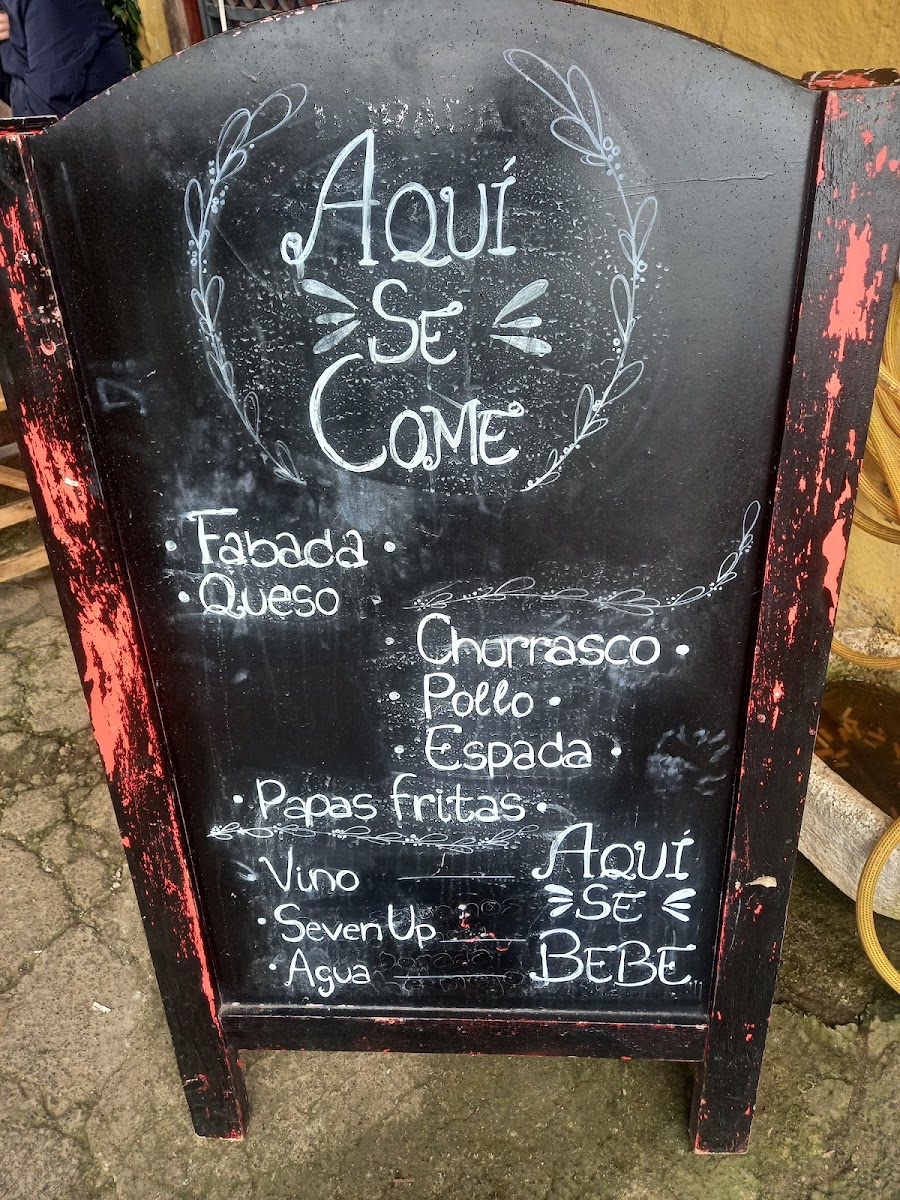 AQUÍ
SE
COME
• Fabada •
• Queso
Churrasco •
• Pollo •
• Espada •
• Papas fritas •
Vino
• Seven Up
• Agua
AQUÍ
SE
BEBE